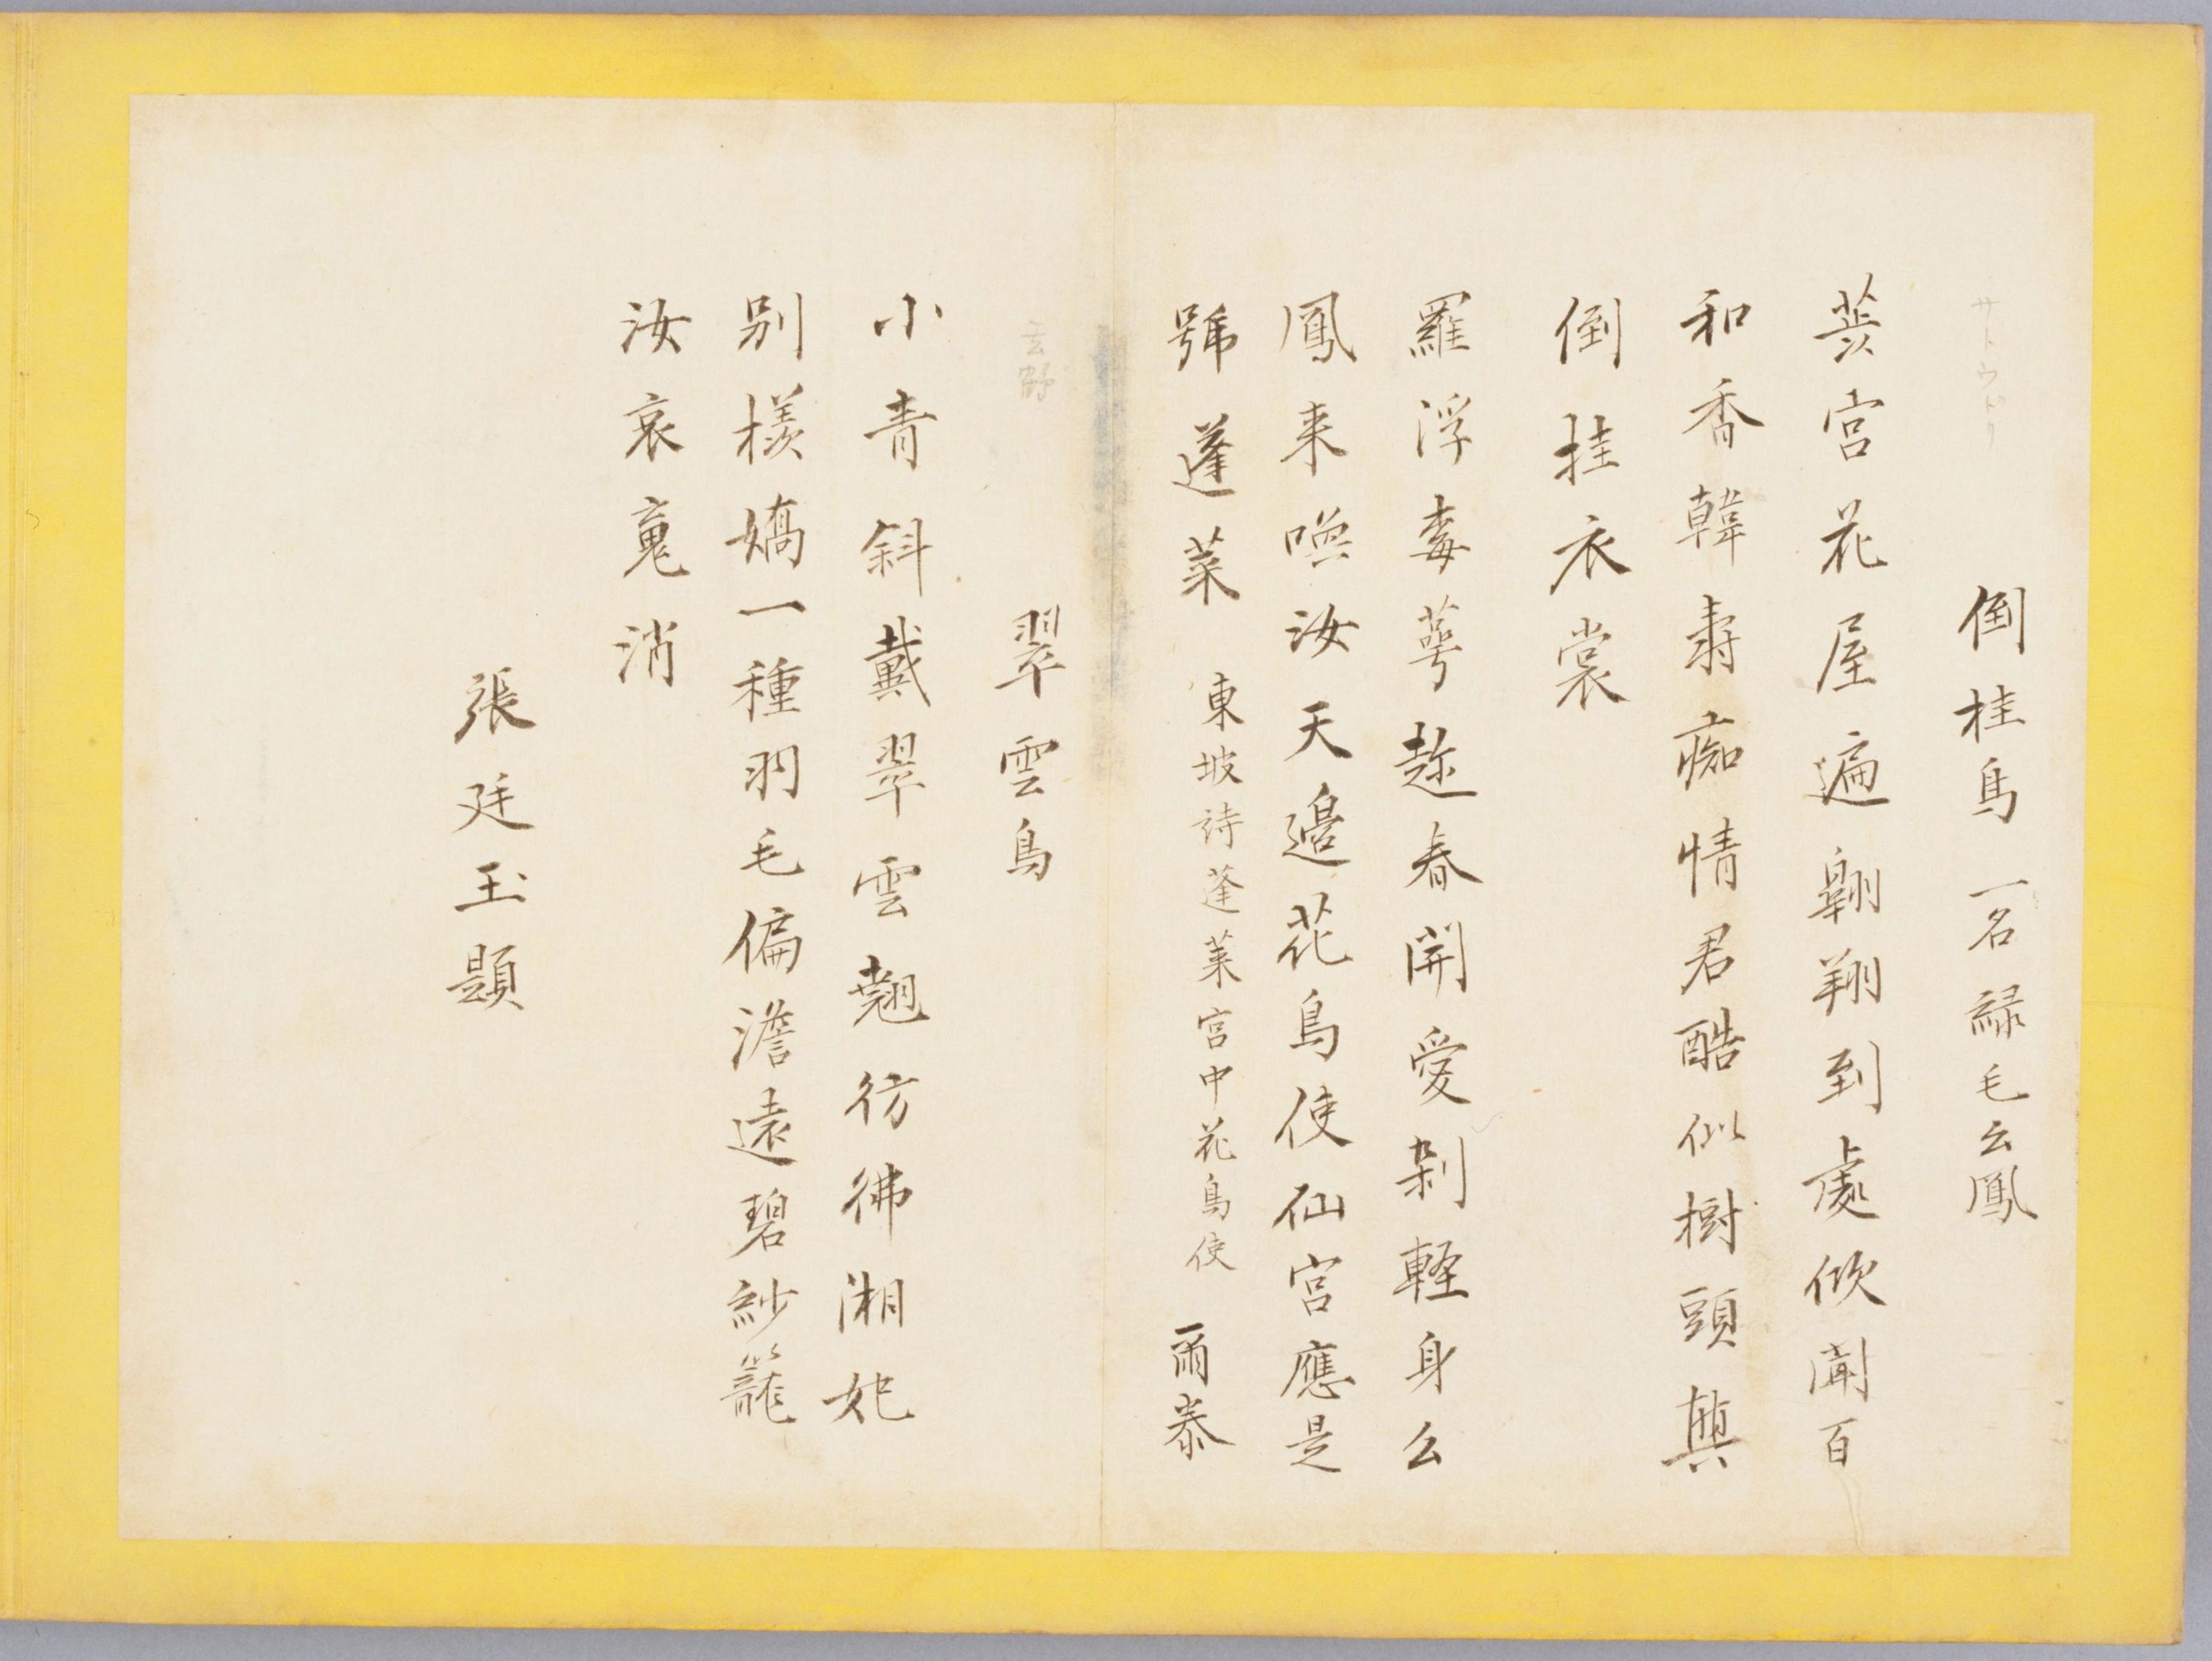 サトウドリ
倒桂鳥 一名緑毛么鳳
宮花屋遍翱翔到處倏聞百
和香韓壽痴情君酷似樹頭與
倒挂衣裳
羅浮萼趂春開愛軽身么
鳳来喚汝天邉花鳥使仙宮應是
號蓬莱 東坡詩蓬莱宮中花鳥使 爾泰
翠雲鳥
小青斜戴翠雲翹彷彿湘妃
別樣嬌一種羽毛偏澹遠碧紗籠
汝哀消
張廷玉題